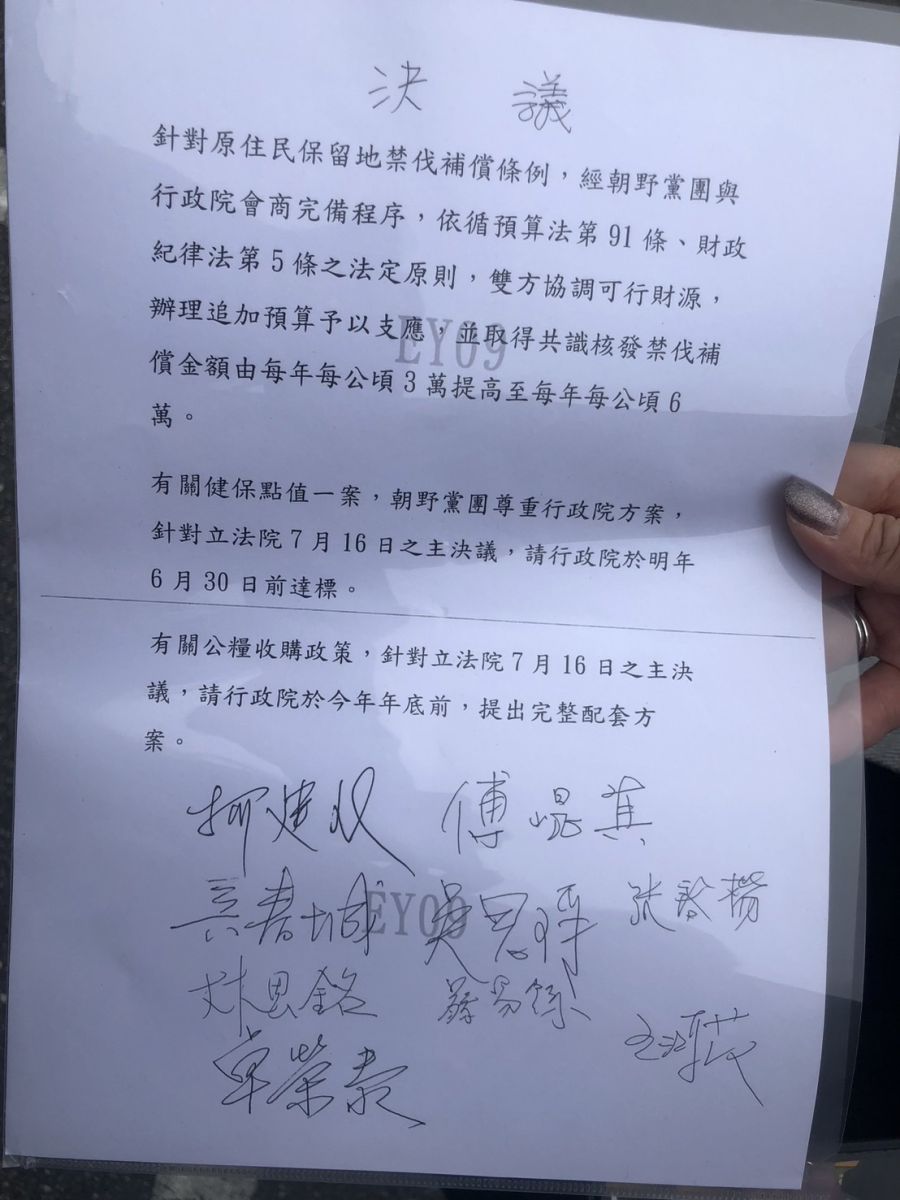 決 議
針對原住民保留地禁伐補償條例，經朝野黨團與
行政院會商完備程序，依循預算法第 91 條、財政
紀律法第 5 條之法定原則，雙方協調可行財源，
辦理追加預算予以支應，並取得共識核發禁伐補
償金額由每年每公頃 3 萬提高至每年每公頃 6
萬。
EY09
有關健保點值一案，朝野黨團尊重行政院方案，
針對立法院 7 月 16 日之主決議，請行政院於明年
6 月 30 日前達標。
有關公糧收購政策，針對立法院 7 月 16 日之主決
議，請行政院於今年年底前，提出完整配套方
案。
柯建 傅崐萁
吳思瑤 張啓楷
EY09
林思銘
卓榮泰